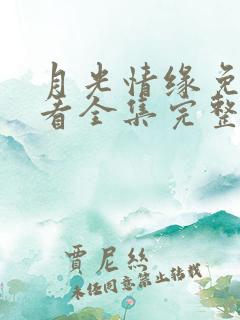 月光情缘免
看全集完整
賈尼絲
未经同意禁止转载